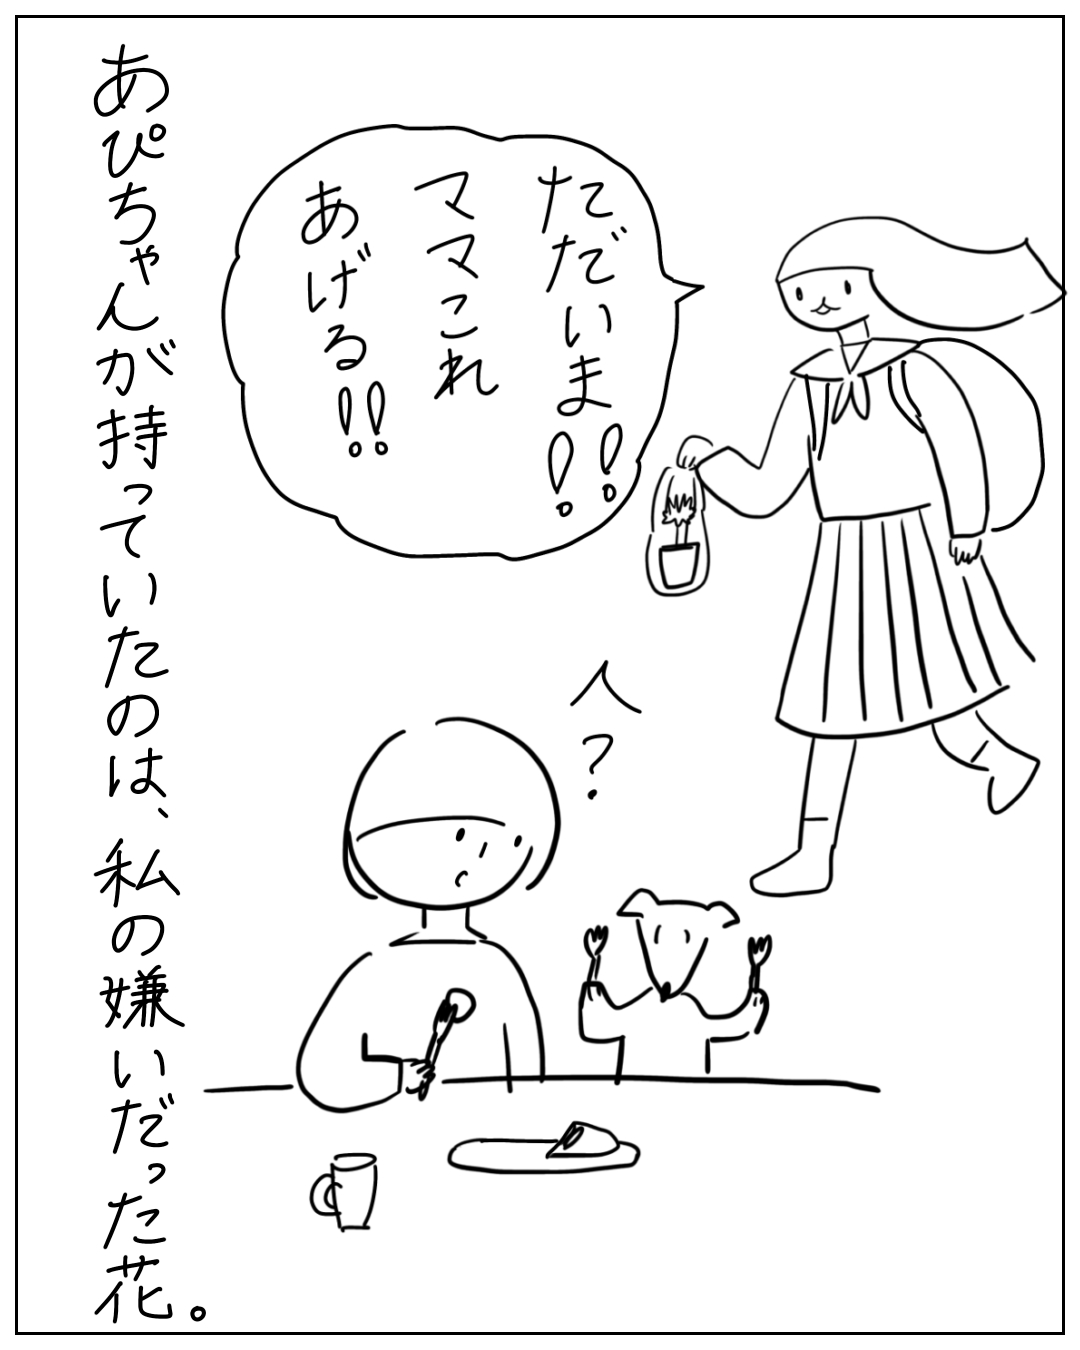 ただいま!!
ママこれ
あげる!!
へ?
あぴちゃんが持っていたのは、私の嫌いだった花。